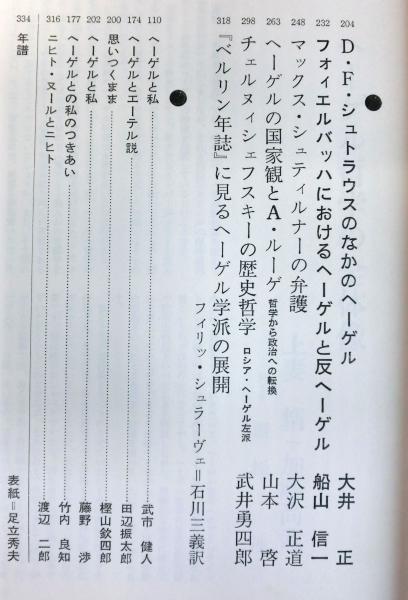 204 D・F・シュトラウスのなかのヘーゲル 大井 正
232 フォイエルバッハにおけるヘーゲルと反ヘーゲル 船山 信一
248 マックス・シュティルナーの弁護 大沢 正道
263 ヘーゲルの国家観とA・ルーゲ 哲学から政治への転換 山本 啓
298 チェルヌィシェフスキーの歴史哲学 ロシア・ヘーゲル左派 武井勇四郎
318 『ベルリン年誌』に見るヘーゲル学派の展開
フィリッ・シュラーヴェ＝石川三義訳
●
110 ヘーゲルと私 武市 健人
174 ヘーゲルとエーテル説 田辺振太郎
200 思いつくまま 樫山欽四郎
202 ヘーゲルと私 藤野 渉
177 ヘーゲルとの私のつきあい 竹内 良知
316 ニヒト・ヌールとニヒト 渡辺 二郎
334 年譜
表紙＝足立秀夫